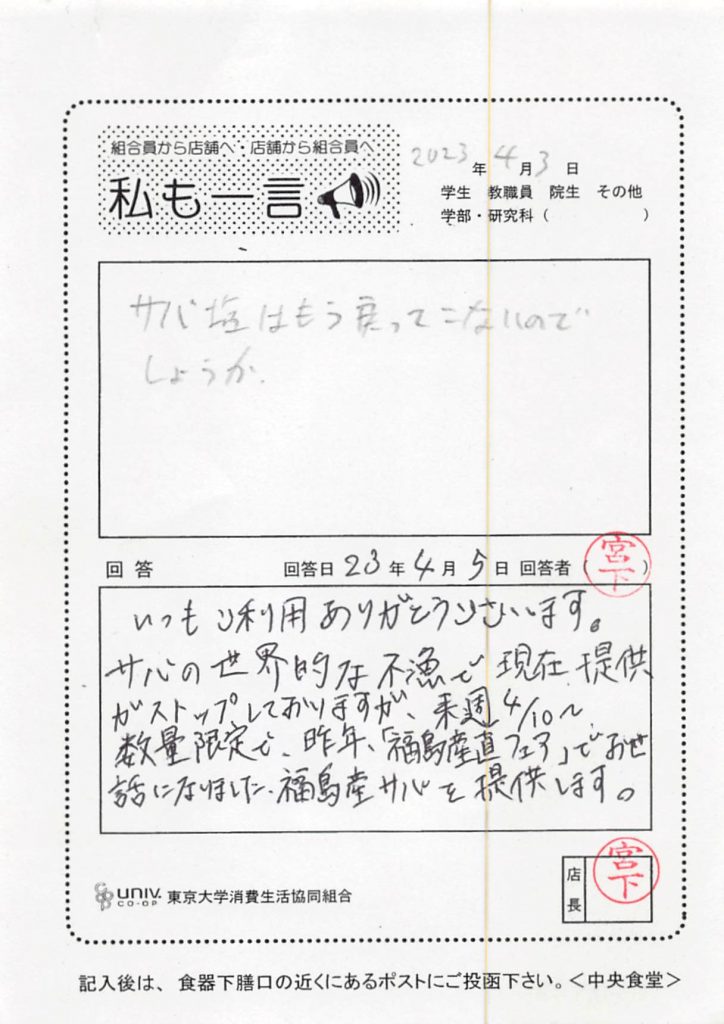 組合員から店舗へ・店舗から組合員へ
私も一言
2023年4月3日
学生 教職員 院生 その他
学部・研究科( )
サバ塩はもう戻ってこないので
しょうか.
回答 回答日 23年4月5日 回答者(宮下)
いつもご利用ありがとうございます。
サバの世界的な不漁で現在提供
がストップしておりますが、来週4/10~
数量限定で、昨年、「福島産直フェア」でお世
話になりました、福島産サバを提供します。
UNIV. CO-OP 東京大学消費生活協同組合
店長 宮下
記入後は、食器下膳口の近くにあるポストにご投函下さい。<中央食堂>